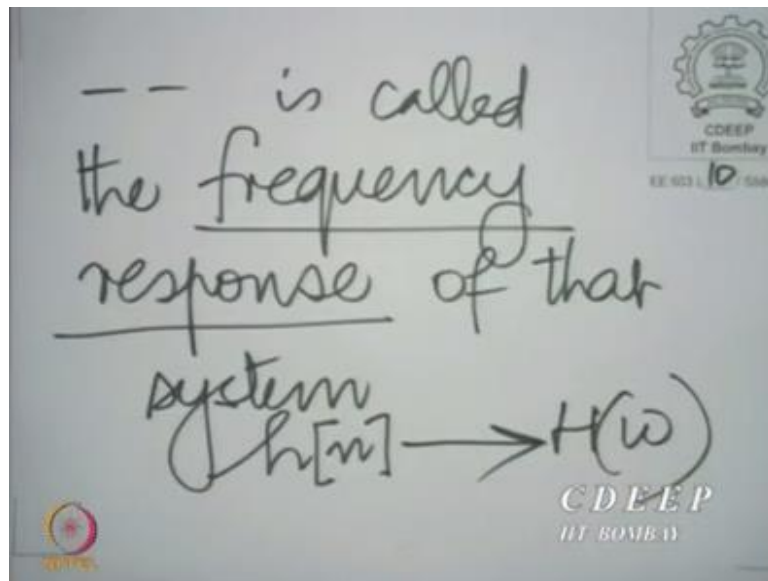 -- is called
the frequency
response of that
system
h[n] → H(ω)
CDEEP
IIT Bombay
EE 603 L 10 / Slide
CDEEP
IIT BOMBAY
NPTEL